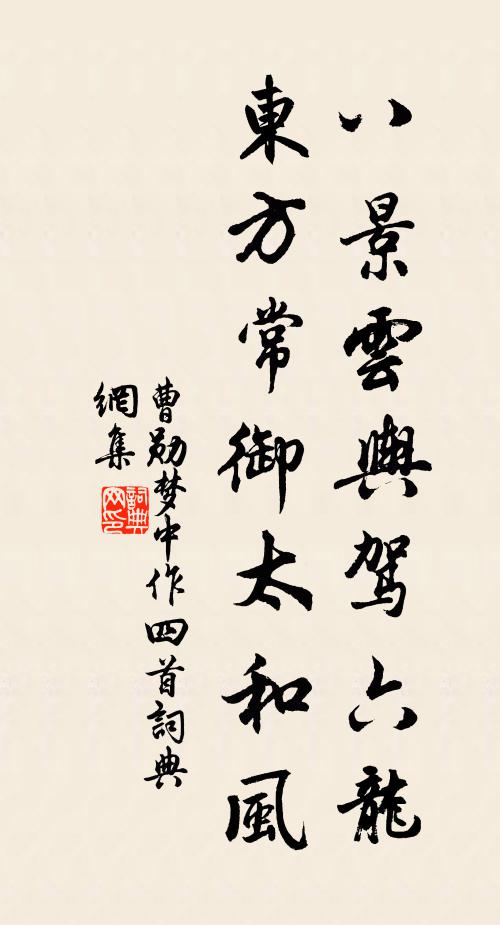 八景雲輿駕六龍
東方常御太和風
曹勛梦中作四首詞典
網集
詞典
网印